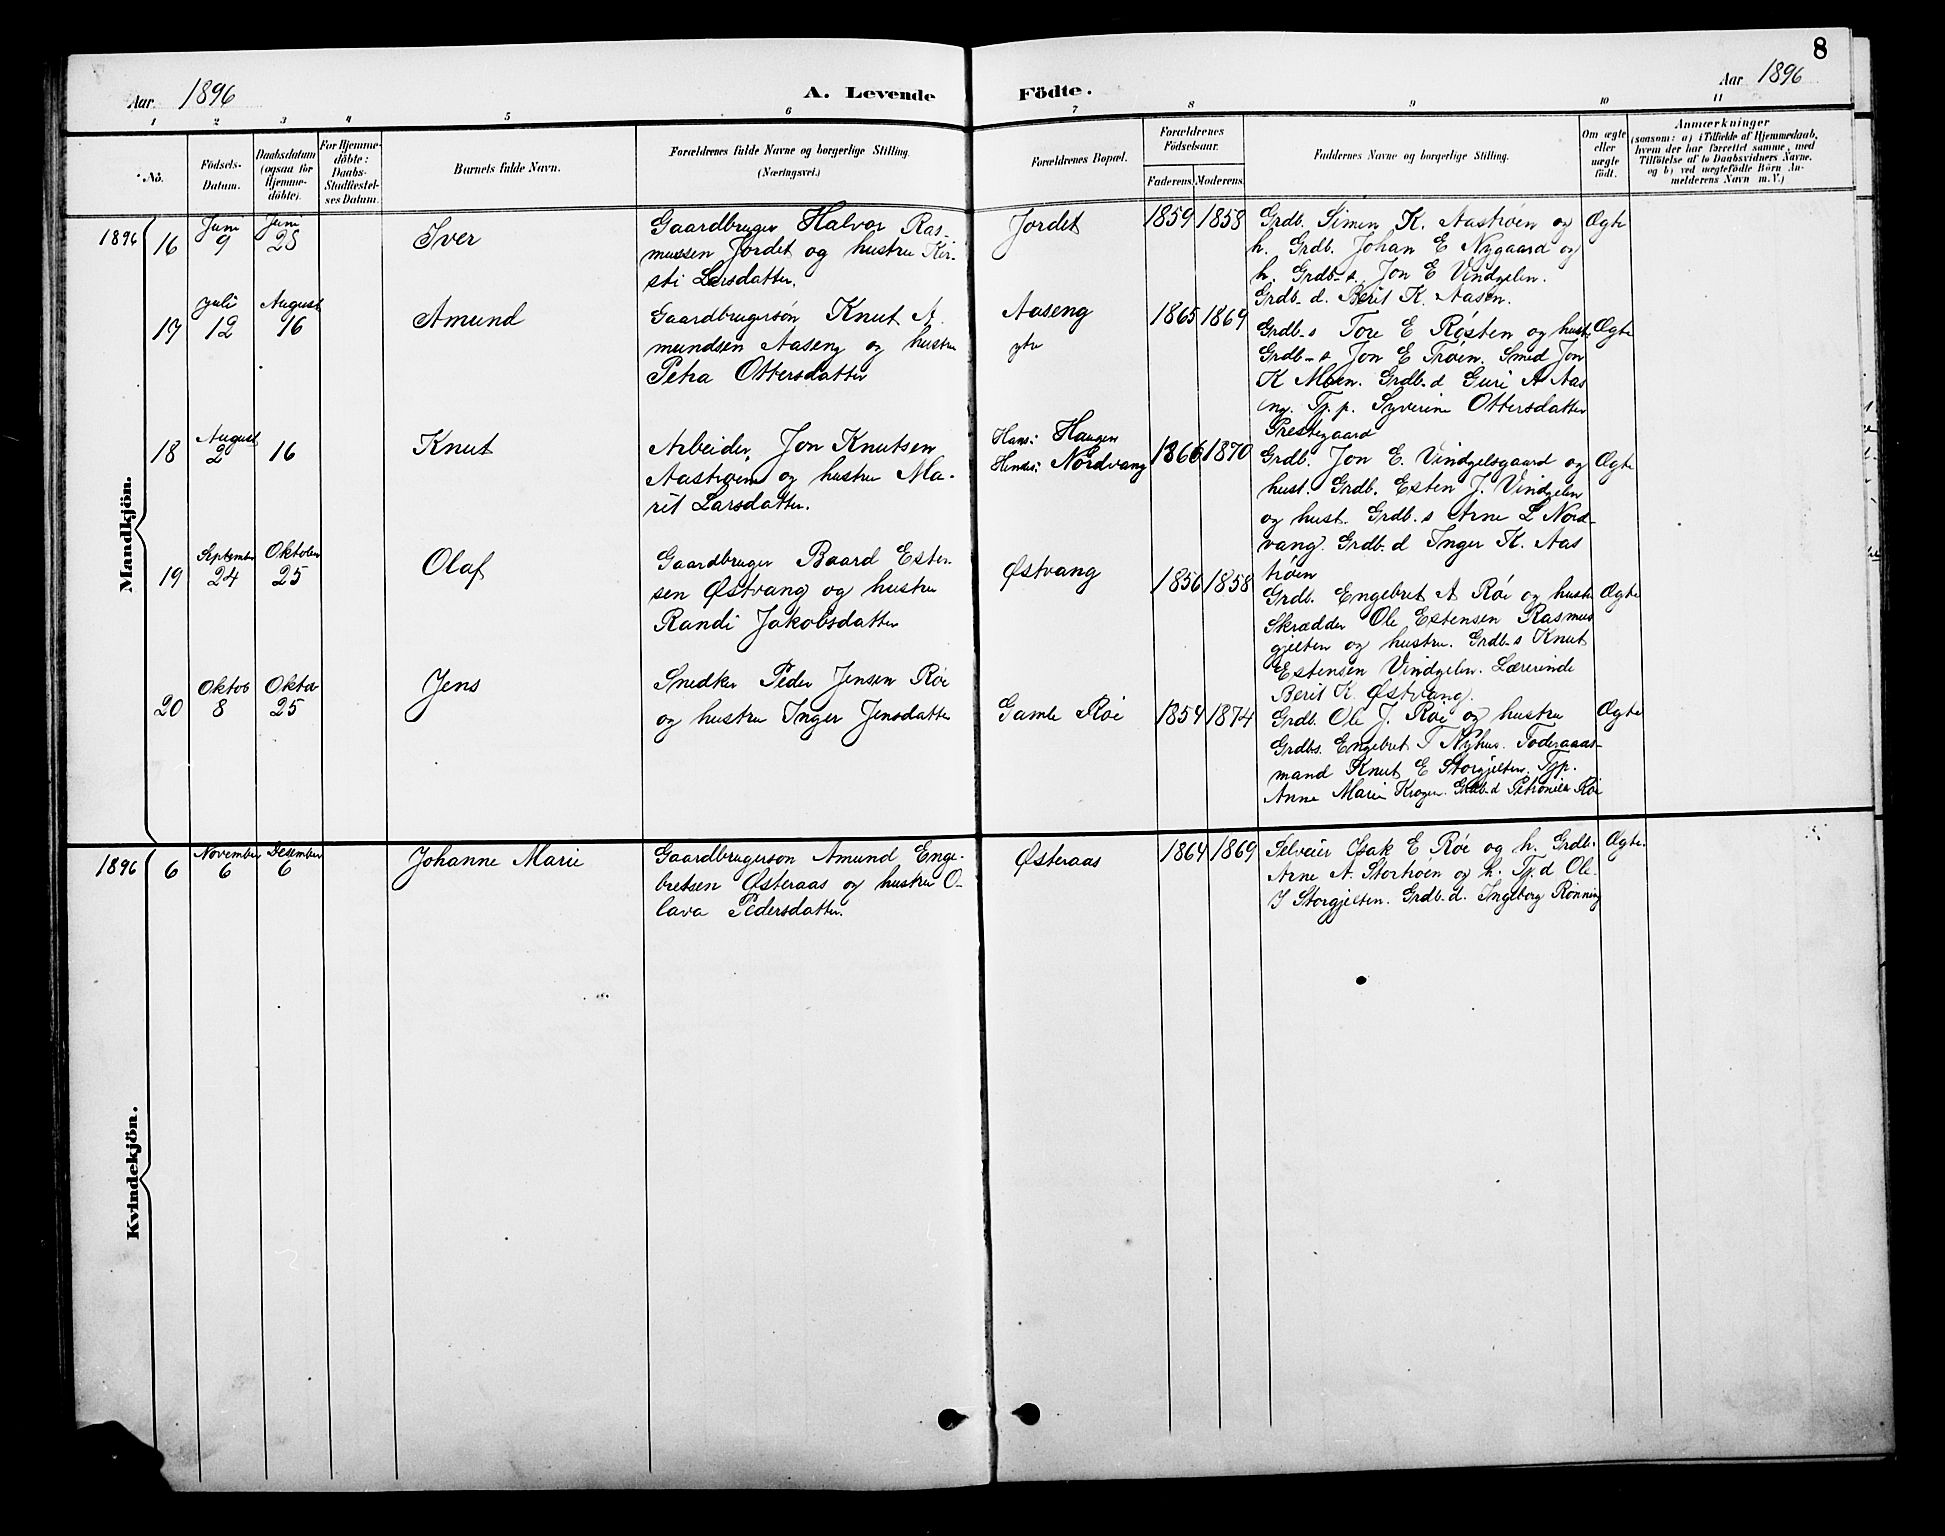 8
Aar. 1896
A. Levende Födte.
Aar 1896
1 2 3 4 5 6 7 8 9 10 11
No.
Födsels-
Datum.
Daabsdatum
(ogsaa for
Hjemme-
döbte).
For Hjemme-
döbte:
Daabs-
Stadfæstel-
ses Datum.
Barnets fulde Navn.
Forældrenes fulde Navne og borgerlige Stilling.
(Næringsvei.)
Forældrenes Bopæl.
Forældrenes
Födselsaar.
Faderens.
Moderens.
Faddernes Navne og borgerlige Stilling.
Om ægte
eller
uægte
födt.
Anmærkninger
(saasom: a) i Tilfælde af Hjemmedaab,
hvem der har forrettet samme, med
Tilföielse af to Daabsvidners Navne,
og b) ved uægtefödte Börn An-
melderens Navn m. V.)
Mandkjön.
1896
16
Juni
9
Juni
28
Iver
Gaardbruger Halvor Ras-
mussen Jordet og hustru Kir-
sti Larsdatter.
Jordet
1859
1858
Grdb. Simen K. Aastrøen og
h. Grdb. Johan E Nygaard og
h. Grdb-s. Jon E Vindgelen.
Grdb-d. Berit K. Aasen.
Ægte
17
Juli
12
August
16
Amund
Gaardbrugersøn Knut A.
mundsen Aaseng og hustru
Petra Ottersdatter
Aaseng
1865
1869
Grdb-s Tore E Røsten og hust.
Grdb-s Jon E Trøen. Smed Jon
K Moen. Grdb.d Guri A Aas
eng. Tj. p. Syverine Ottersdatter
Prestegaard
Ægte
18
August
2
16
Knut
Arbeider, Jon Knutsen
Aastrøen og hustru Ma-
rit Larsdatter.
Hans: Haugen
Hendes: Nordvang
1866
1870
Grdb. Jon E. Vindgelsgaard og
hust. Grdb. Esten J. Vindgelen
og hust. Grdb.s Arne L Nord-
vang. Grdb.d Inger K. Aas
trøen
Ægte
19
September
24
Oktober
25
Olaf
Gaardbruger Baard Esten-
sen Østvang og hustru
Randi Jakobsdatter
Østvang
1856
1858
Grdb. Engebret A Røe og hustr
Skrædder Ole Estensen Rasmus
gjelten og hustru. Grdb-s Knut
Estensen Vindgelen. Lærerinde
Berit K. Østvang.
Ægte
20
Oktob
8
Okto
25
Jens
Snedker Peder Jensen Røe
og hustru Inger Jensdatter
Gamle Røe
1854
1874
Grdb. Ole J. Røe og hustru
Grdbs. Engebret T Nyhus. Foderaas-
mand Knut E Storgjelten. Tjp.
Anne Marie Krogen. Grdb.d Røe
Ægte
Kvindekjön.
1896
6
November
6
Desember
6
Johanne Marie
Gaardbrugersøn Amund Enge-
bretsen Østeraas og hustru O-
lava Pedersdatter.
Østeraas
1864
1869
Selveier Isak E Røe og h. Grdb.
Arne A. Stortrøen og h. Tj.d Ole
J Storgjelten. Grdb.d. Ingeborg Rønning
Ægte.